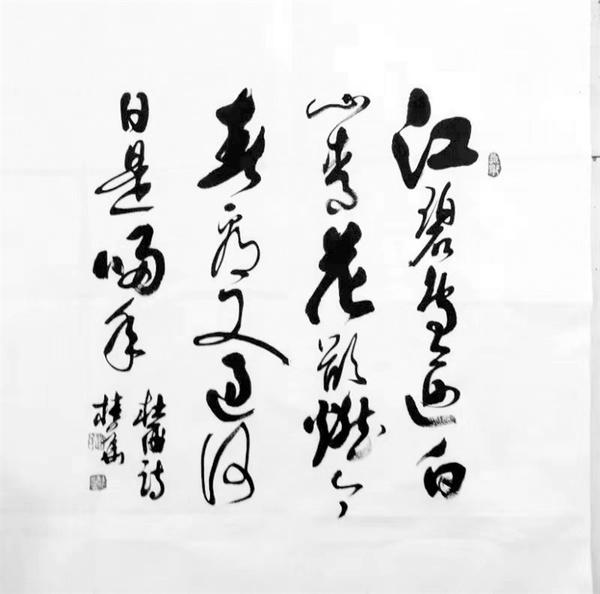 江碧鳥逾白
山青花欲燃今
春看又過何
日是歸年
杜甫詩
桂